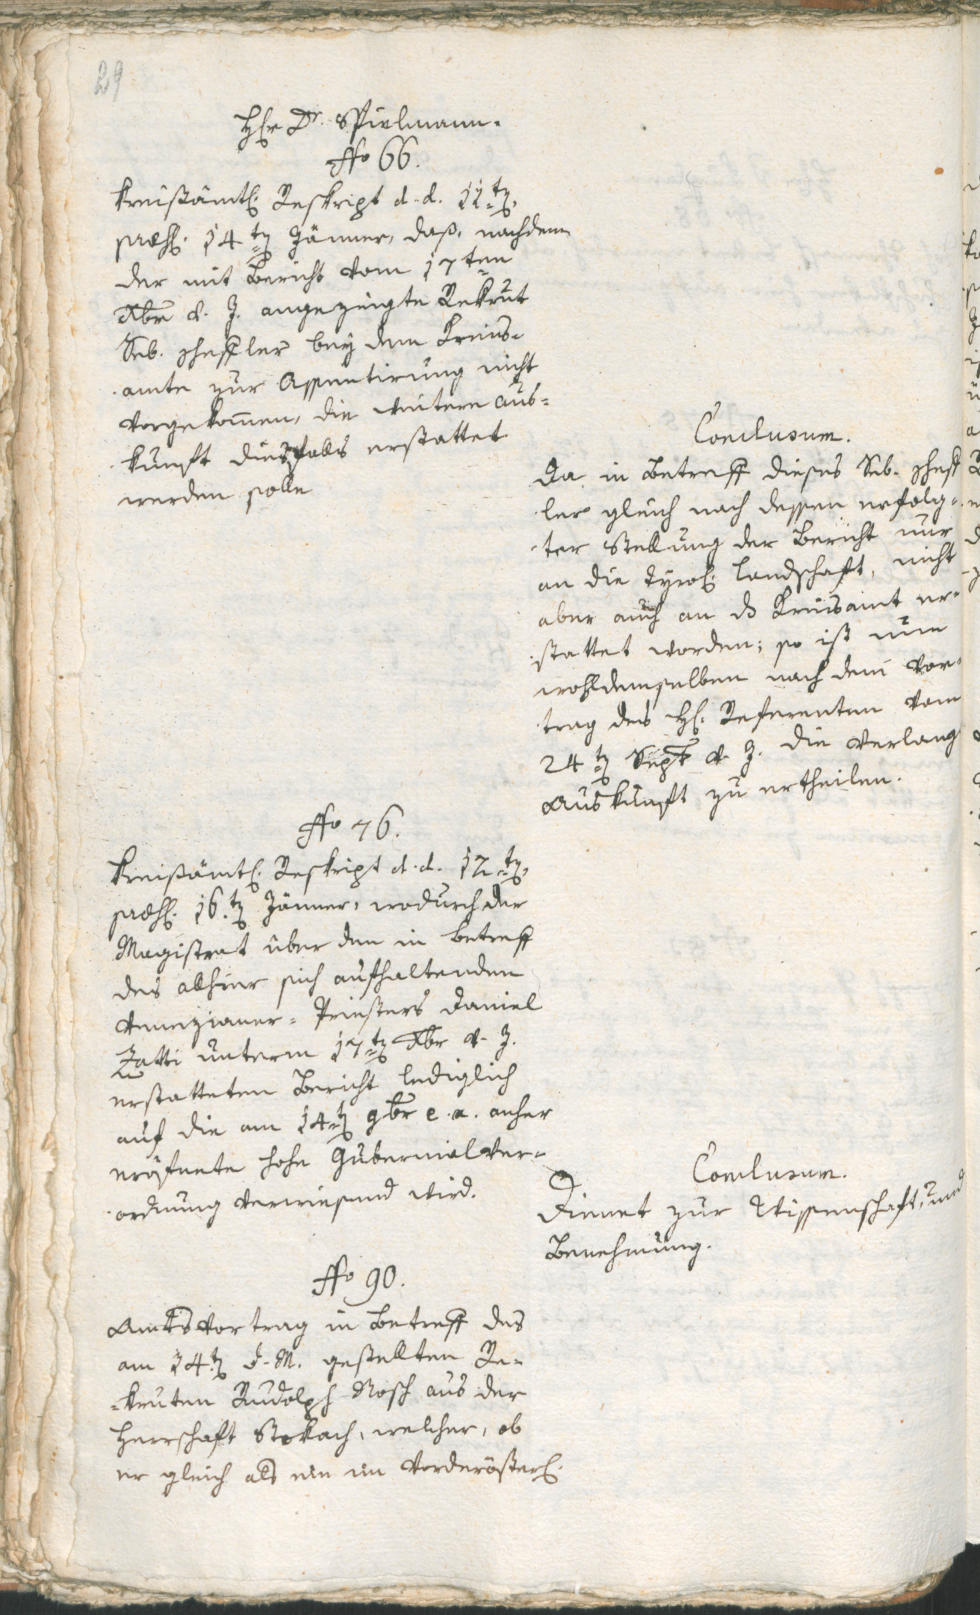 29
H[er]r Dr. Spielmann.
No 66.
Kreißämtl. Reskript d. d. 11ten,
præs. 14ten Jänner, daß, nachdem
der mit Bericht vom 17ten
Xbr v. J. angezeigte Rekrut
Seb. Scheßler bey dem Kreis-
amte zur Assentirung nicht
vorgekom̄en, die weitere Aus-
kunft diesfalls erstattet
werden solle
Conclusum.
Da in Betreff dieses Seb. Scheß
ler gleich nach dessen erfolg-
ter Stellung der Bericht nur
an die Tyrol. Landschaft, nicht
aber auch an ds Kreisamt er-
stattet worden; so ist nun
wohldemselben nach dem Vor-
trag des H. Referenten vom
24ten Sept v. J. die verlang
Auskunft zu ertheilen.
No 76.
Kreißämtl. Reskript d. d. 12ten,
præs. 16ten Jänner, wodurch der
Magistrat über den in betreff
des allhier sich aufhaltenden
Venezianer-Priesters Daniel
Zatti unterm 17ten Xbr v. J.
erstatteten Bericht lediglich
auf die am 14ten 9br e. a. anher
eröfnete hohe Gubernialver-
ordnung verwiesend wird.
Conclusum.
Dienet zur Wissenschaft, und
Benehmung.
No 90.
Amtsvortrag in Betreff des
am 14ten d. M. gestellten Re-
kruten Rudolph Nosch aus der
Herrschaft Stokach, welcher, ob
er gleich als ein im Vorderösterl.